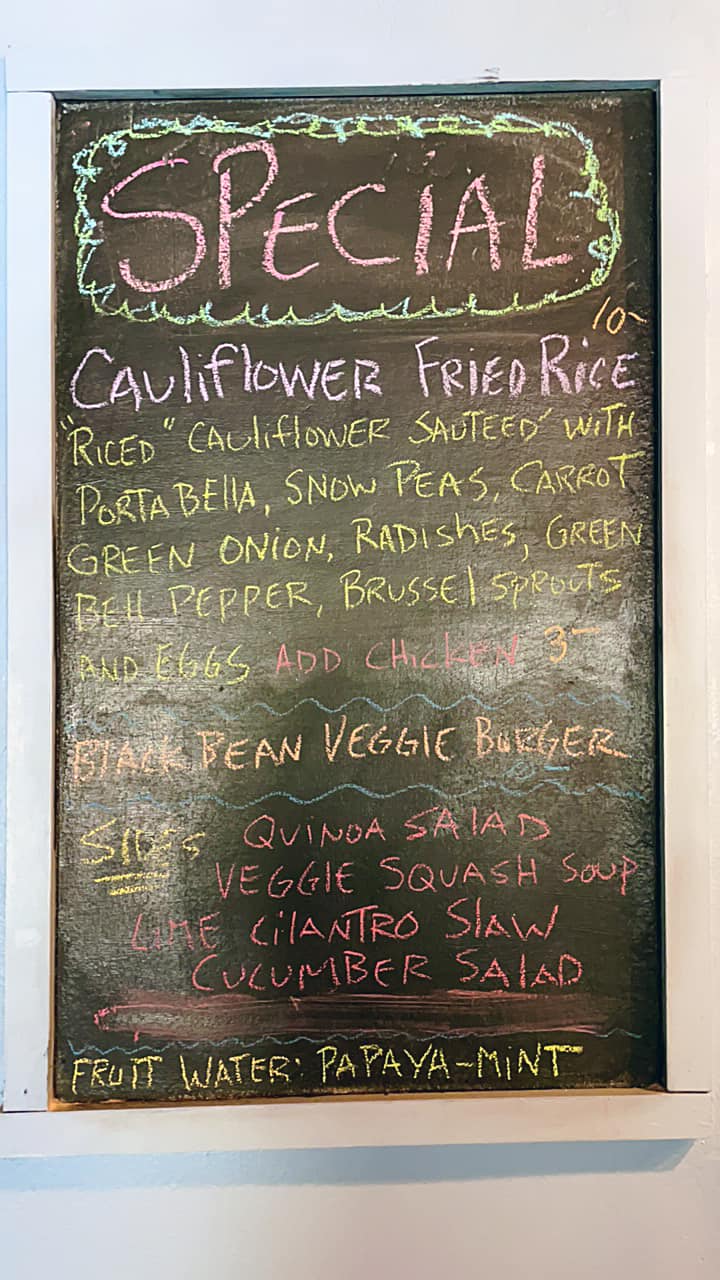 SPECIAL
10-
CAULIFLOWER FRIED RICE
"RICED" CAULIFLOWER SAUTEED' WITH
PORTABELLA, SNOW PEAS, CARROT
GREEN ONION, RADISHES, GREEN
BELL PEPPER, BRUSSEL SPROUTS
AND EGGS ADD CHICKEN 3-
BLACK BEAN VEGGIE BURGER
SIDES QUINOA SALAD
VEGGIE SQUASH SOUP
LIME CILANTRO SLAW
CUCUMBER SALAD
FRUIT WATER: PAPAYA-MINT